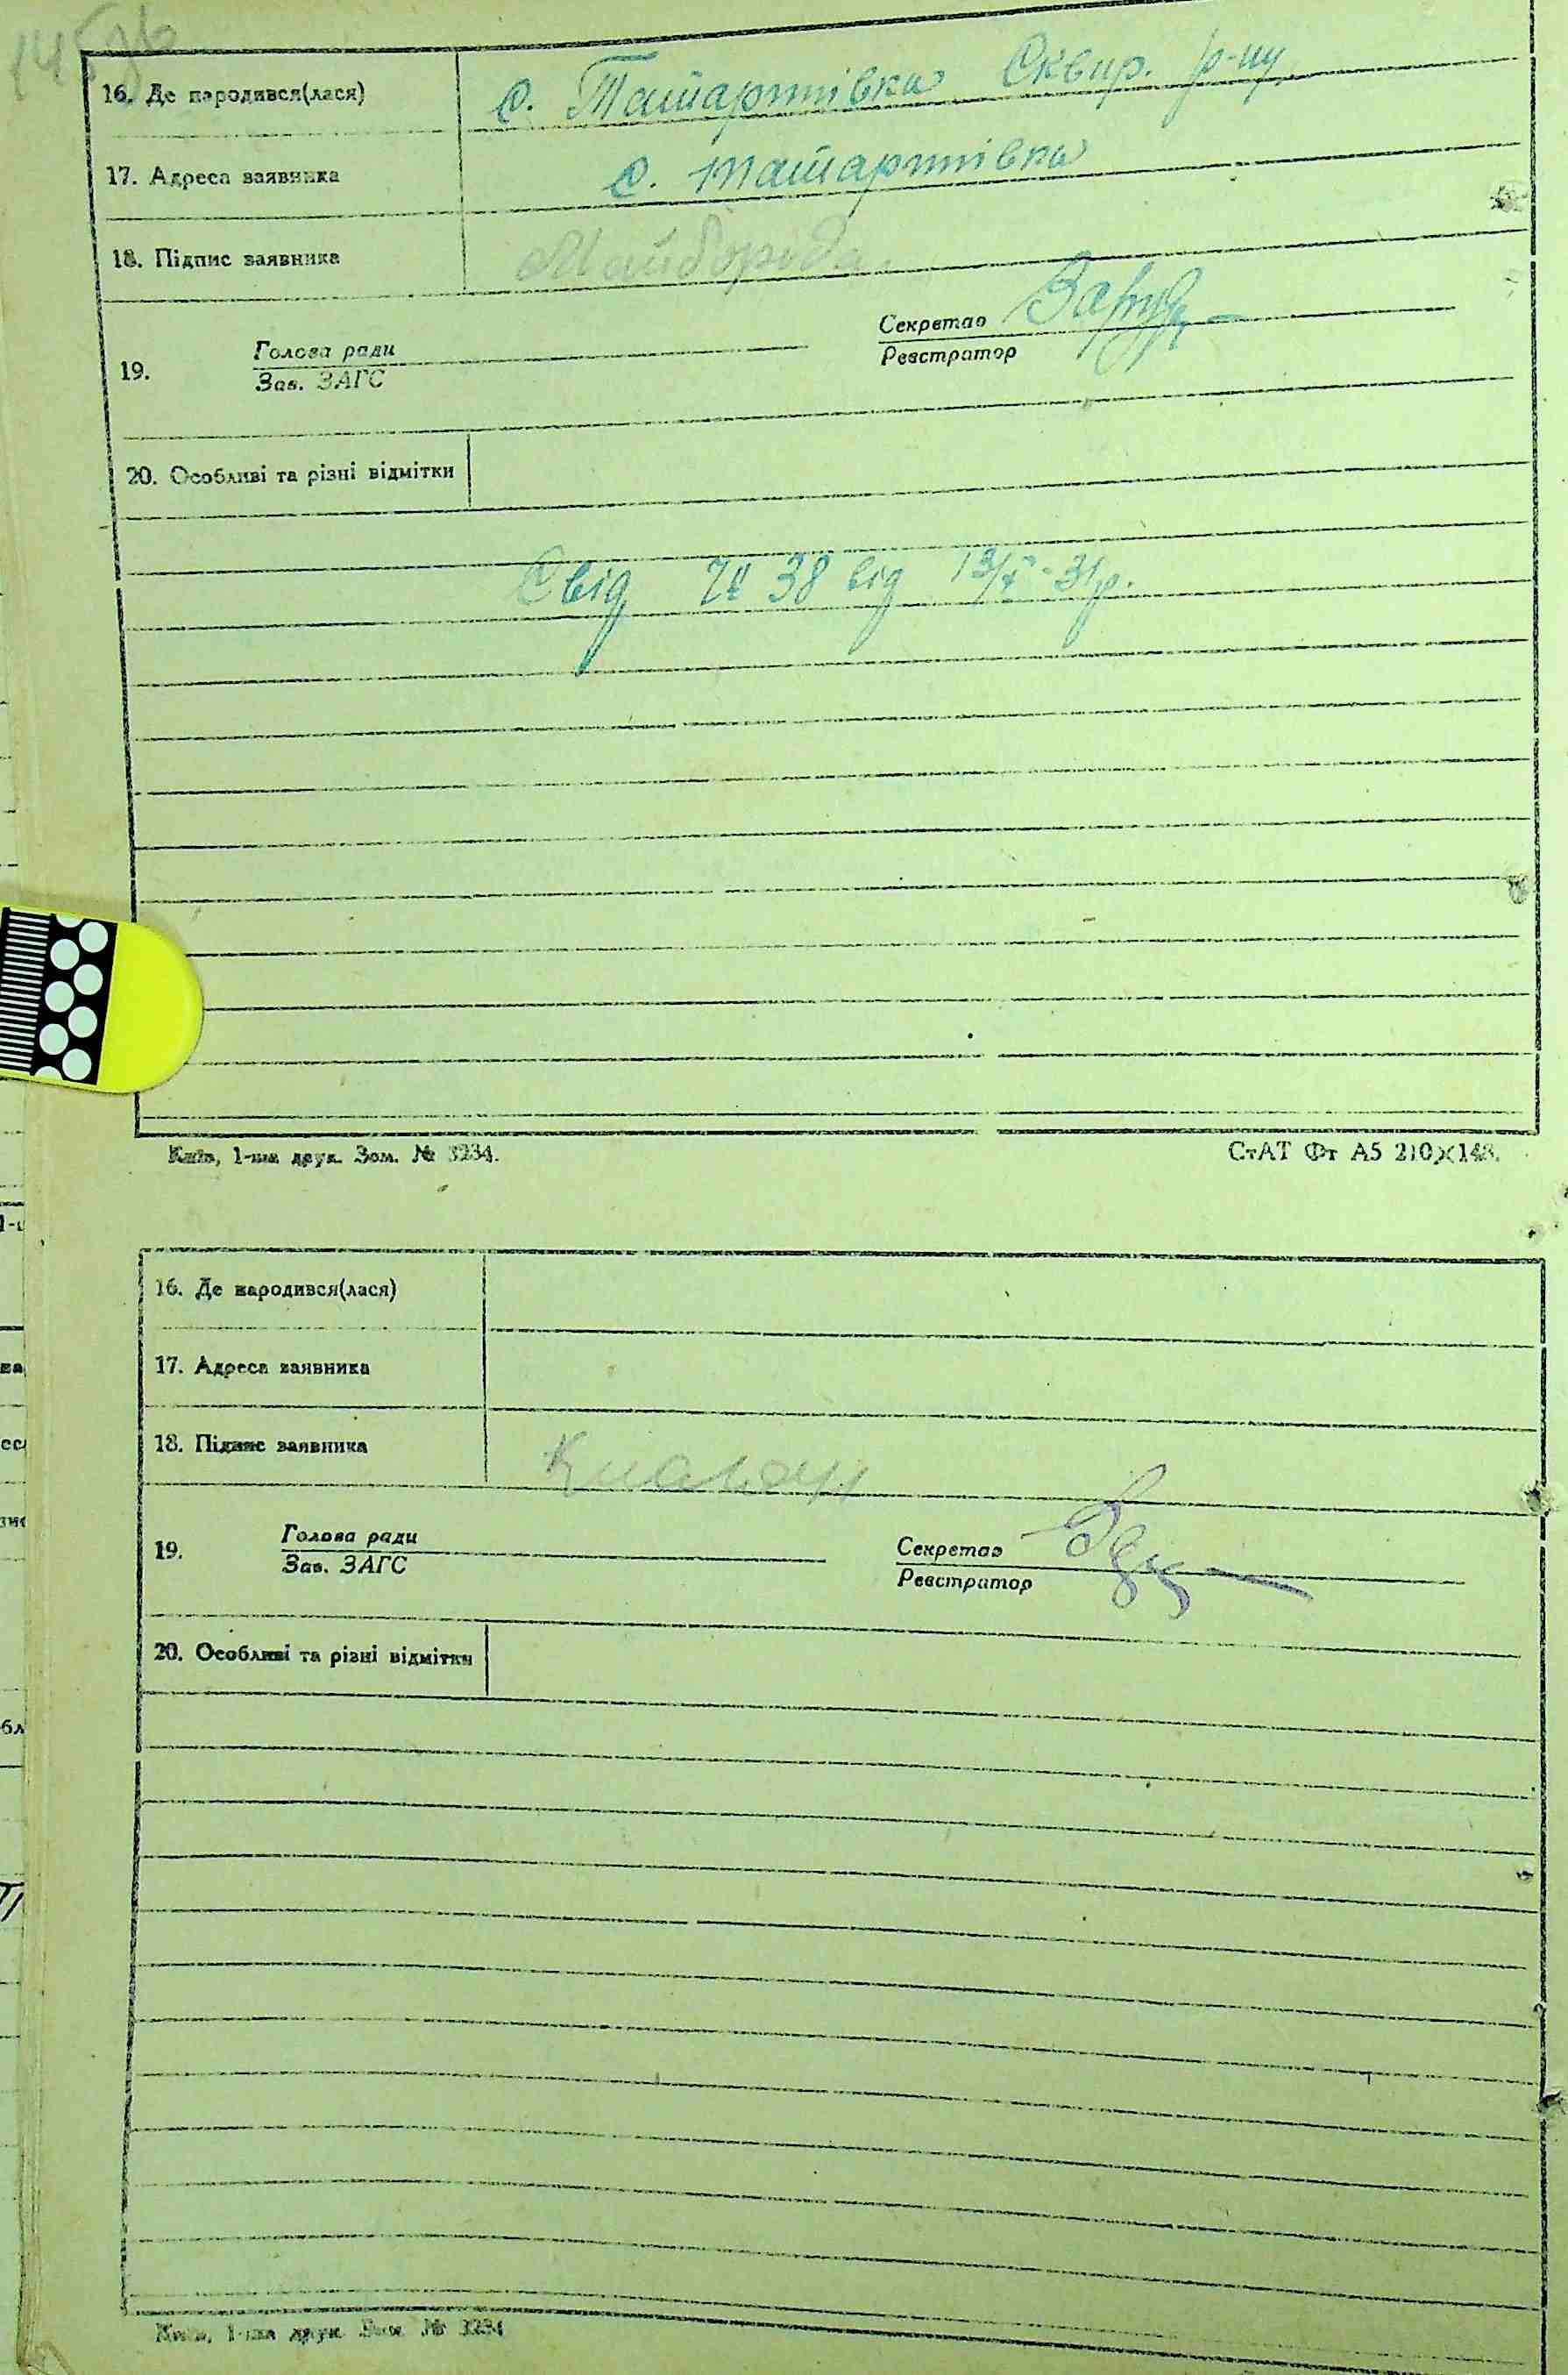 16. Де народився(лася) с. Татарптівка Сквир. р-ну
17. Адреса заявника с. татарптівка
18. Підпис заявника Майборода
Секретар
19. Голова ради Реєстратор
Зав. ЗАГС
20. Особливі та різні відмітки
Свід № 38 від 13/X - 31р.
Київ, 1-ша друк. Зам. № 3234. СтАТ Фт А5 210×148.
16. Де народився(лася)
17. Адреса заявника
18. Підпис заявника
19. Голова ради Секретар
Зав. ЗАГС Реєстратор
20. Особливі та різні відмітки
Київ, 1-ша друк. Зам. № 3234